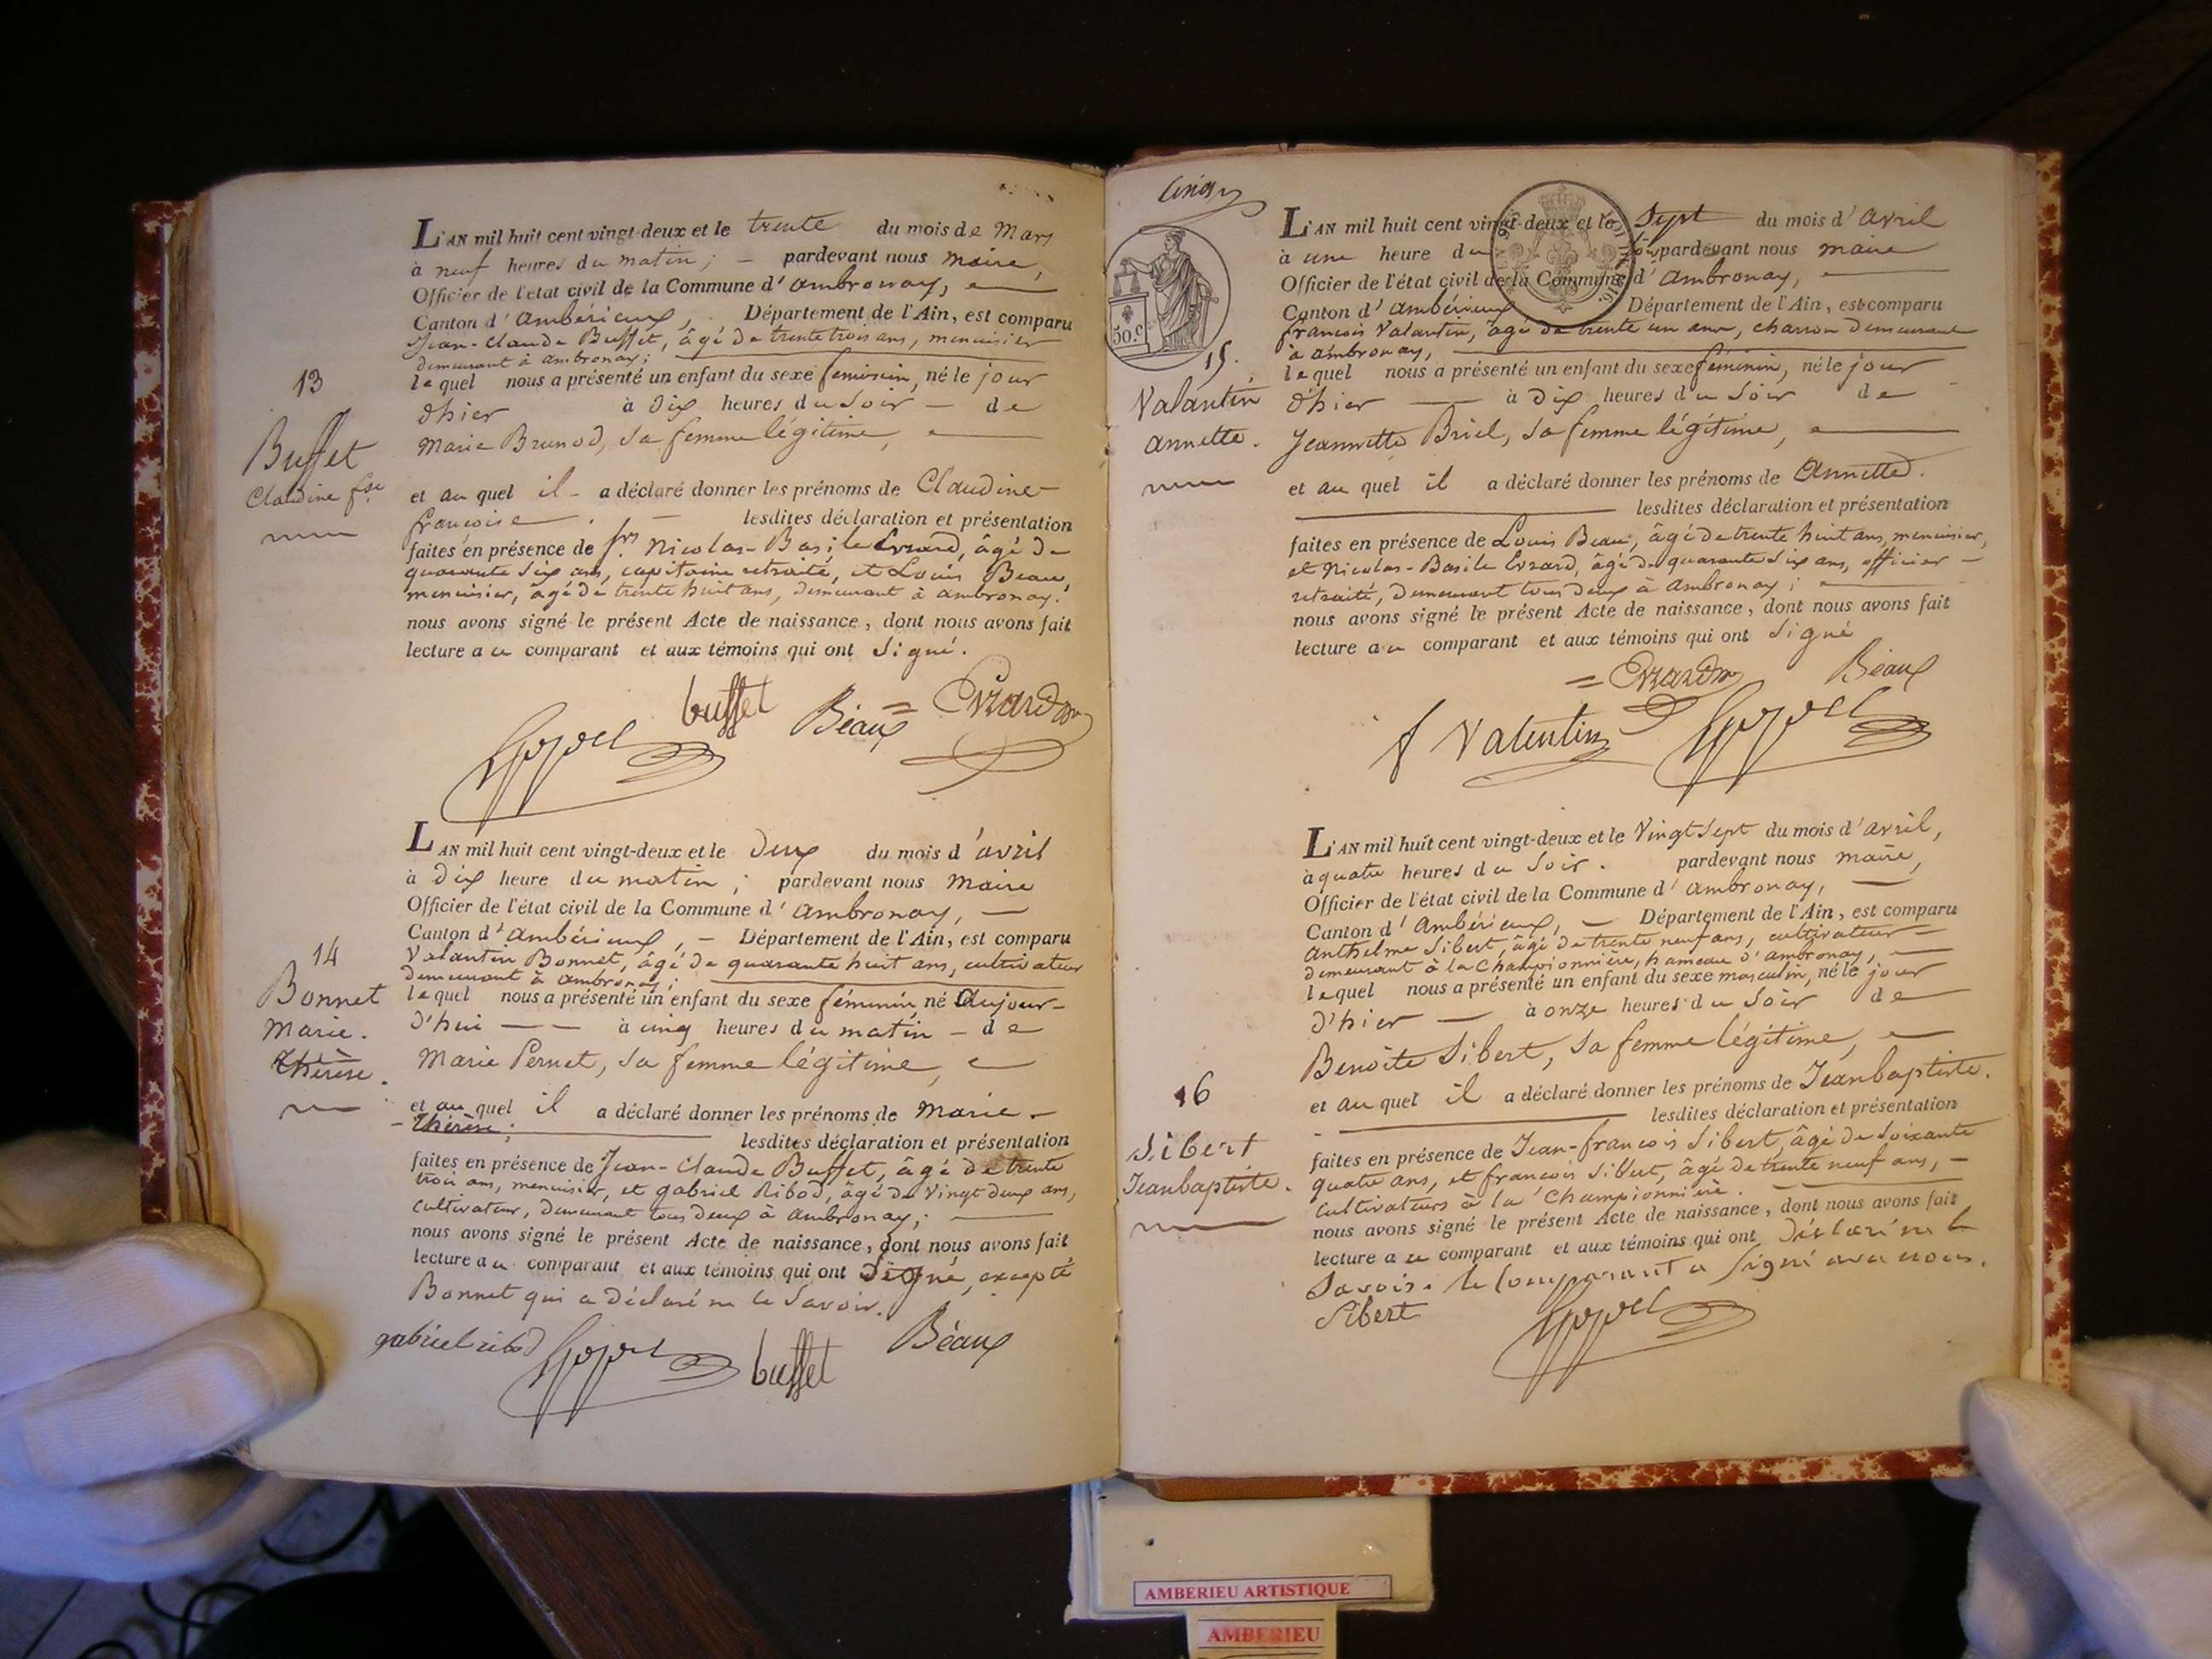 13
Buffet
Claudine fse
L'AN mil huit cent vingt-deux et le trente du mois de Mars
à neuf heures du matin ; — pardevant nous maire,
Officier de l'état civil de la Commune d'ambronay,
Canton d'ambérieux, Département de l'Ain, est comparu
Jean-Claude Buffet, âgé de trente trois ans, menuisier
demeurant à ambronay;
lequel nous a présenté un enfant du sexe feminin, né le jour
d'hier à dix heures du soir — de
Marie Brunod, sa femme légitime,
et au quel il - a déclaré donner les prénoms de Claudine
françoise. — lesdites déclaration et présentation
faites en présence de Nicolas-Basile Evrard, âgé de
quarante six ans, capitaine retraité, et Louis Beau,
menuisier, âgé de trente huit ans, demeurant à ambronay.
nous avons signé le présent Acte de naissance, dont nous avons fait
lecture au comparant et aux témoins qui ont signé.
buffet Béaux = Evrard
14
Bonnet
Marie.
thérèse.
L'AN mil huit cent vingt-deux et le deux du mois d'avril
à dix heure du matin ; pardevant nous maire
Officier de l'état civil de la Commune d'ambronay, —
Canton d'ambérieux, — Département de l'Ain, est comparu
Valantin Bonnet, âgé de quarante huit ans, cultivateur
demeurant à ambronay;
lequel nous a présenté un enfant du sexe féminin, né aujour-
d'hui — — à cinq heures du matin — de
Marie Pernet, sa femme légitime,
et au quel il a déclaré donner les prénoms de Marie —
- thérèse; lesdites déclaration et présentation
faites en présence de Jean-Claude Buffet, âgé de trente
trois ans, menuisier, et gabriel Ribod, âgé de vingt deux ans,
cultivateur, demeurant tous deux à ambronay;
nous avons signé le présent Acte de naissance, dont nous avons fait
lecture au comparant et aux témoins qui ont signé, excepté
Bonnet qui a déclaré ne le savoir.
gabriel ribod buffet Béaux
50.c
15.
Valantin
annette.
L'AN mil huit cent vingt-deux et le sept du mois d'avril
à une heure du pardevant nous maire
Officier de l'état civil de la Commune d'ambronay,
Canton d'ambérieux Département de l'Ain, est comparu
françois Valantin, âgé de trente un ans, charron demeurant
à ambronay,
lequel nous a présenté un enfant du sexe féminin, né le jour
d'hier — à dix heures du soir de
Jeannette Briel, sa femme légitime,
et au quel il a déclaré donner les prénoms de Annette.
lesdites déclaration et présentation
faites en présence de Louis Beau, âgé de trente huit ans, menuisier,
et Nicolas-Basile Evrard, âgé de quarante six ans, officier —
retraité, demeurant tous deux à ambronay ;
nous avons signé le présent Acte de naissance, dont nous avons fait
lecture au comparant et aux témoins qui ont signé
= Evrard Béaux
f Valentin
16
Sibert
Jeanbaptiste.
L'AN mil huit cent vingt-deux et le vingt sept du mois d'avril,
à quatre heures du soir. pardevant nous maire,
Officier de l'état civil de la Commune d'ambronay, —
Canton d'ambérieux, — Département de l'Ain, est comparu
anthelme Sibert, âgé de trente neuf ans, cultivateur
demeurant à la Championnière, hameau d'ambronay,
lequel nous a présenté un enfant du sexe masculin, né le jour
d'hier — à onze heures du soir de
Benoite Sibert, sa femme légitime,
et au quel il a déclaré donner les prénoms de Jeanbaptiste.
lesdites déclaration et présentation
faites en présence de Jean-françois Sibert, âgé de soixante
quatre ans, et françois Sibert, âgé de trente neuf ans, —
cultivateurs à la Championnière.
nous avons signé le présent Acte de naissance, dont nous avons fait
lecture au comparant et aux témoins qui ont déclaré ne le
savoir. le Comparant a signé avec nous.
Sibert
AMBERIEU ARTISTIQUE
AMBERIEU